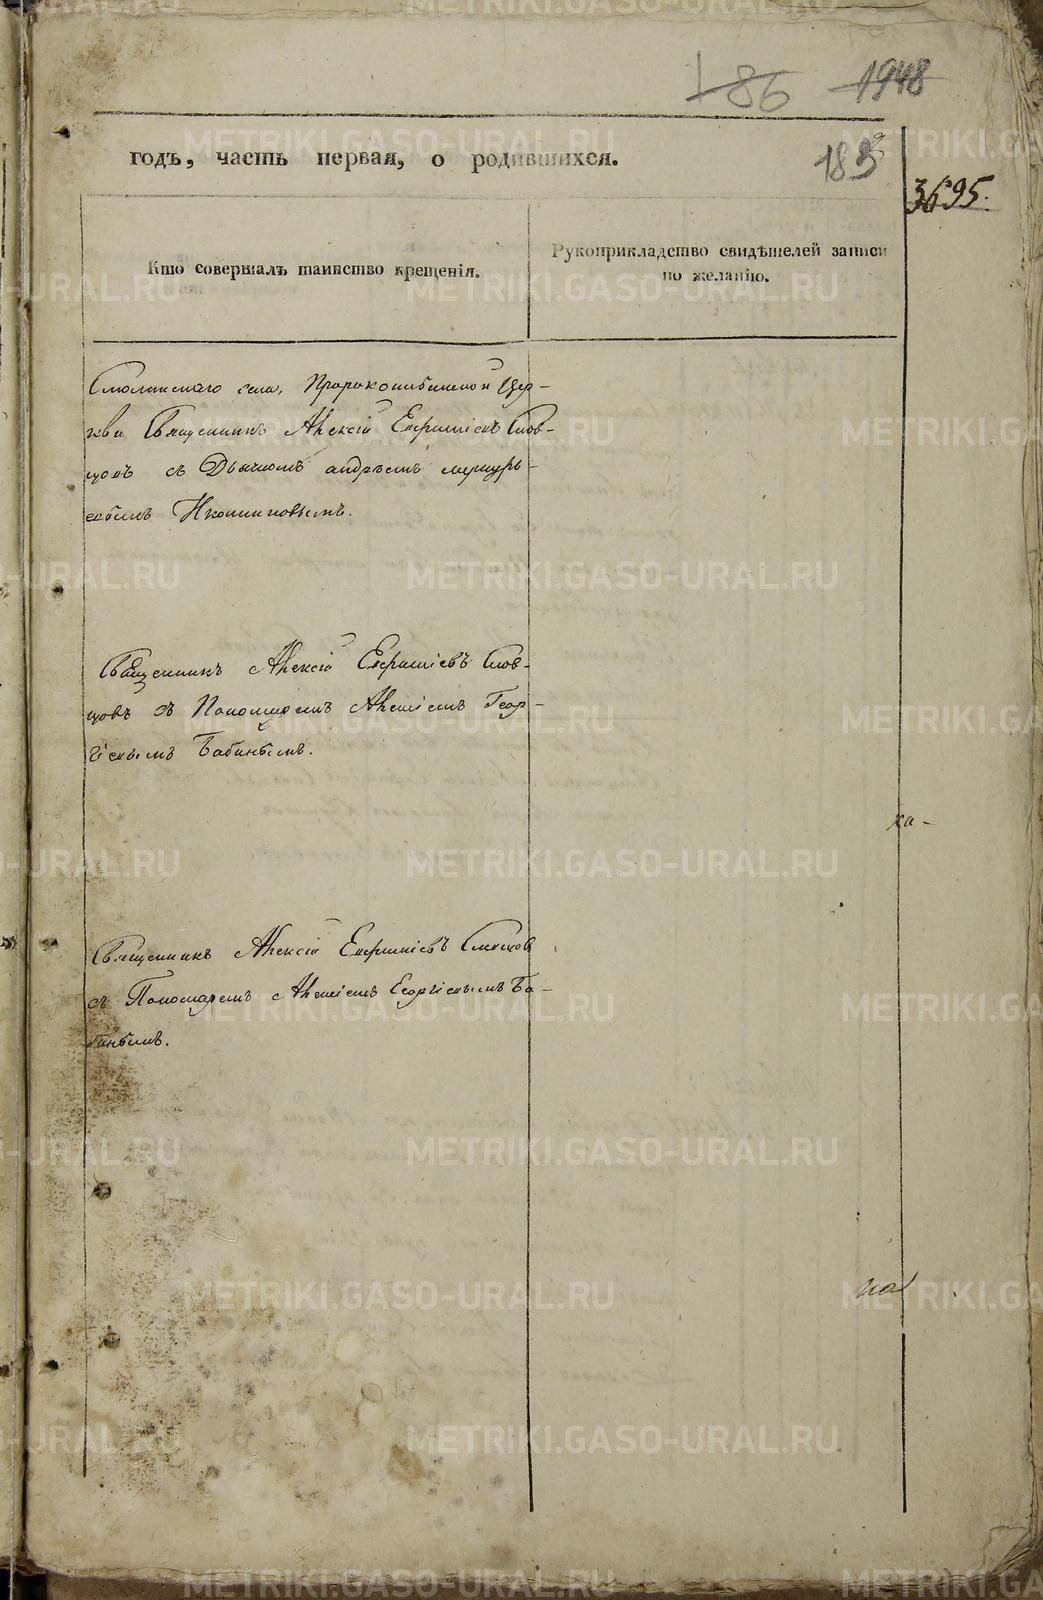 186 1948
годъ, часть первая, о родившихся.
183
3695.
Кто совершалъ таинство крещенія.
Рукоприкладство свидѣтелей записи
по желанію.
Смолинскаго села, Пророкоильинской Цер-
кви Священникъ Алексій Ефиміевъ Слов-
цовъ съ Дьячкомъ
Священникъ Алексій Ефиміевъ Слов-
цовъ съ Пономаремъ Геор-
гіевымъ Бабинымъ.
Священникъ Алексій Ефиміевъ Словцов
съ Пономаремъ Георгіевымъ Ба-
бинымъ.
METRIKI.GASO-URAL.RU